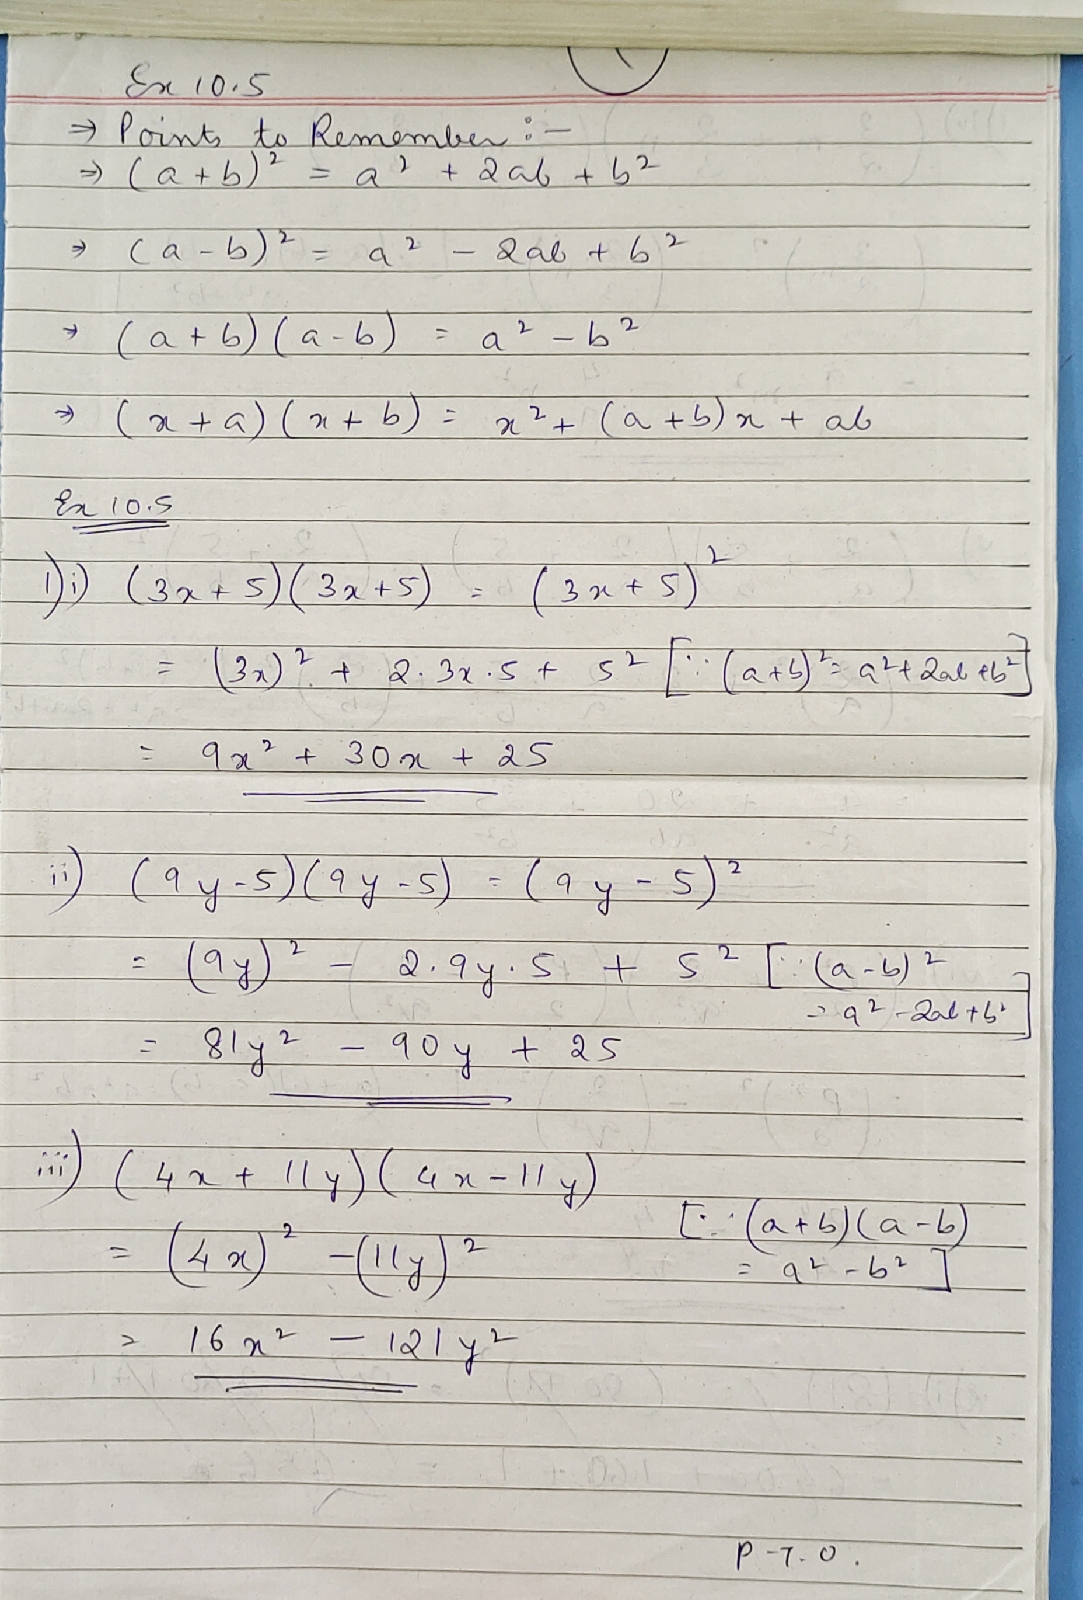 Ex 10.5
⇒ Points to Remember :-
⇒ (a+b)² = a² + 2ab + b²
⇒ (a-b)² = a² - 2ab + b²
⇒ (a+b)(a-b) = a² - b²
⇒ (x+a)(x+b) = x² + (a+b)x + ab
Ex 10.5
1) i) (3x+5)(3x+5) = (3x+5)²
= (3x)² + 2.3x.5 + 5² [∵ (a+b)² = a²+2ab+b²]
= 9x² + 30x + 25
ii) (9y-5)(9y-5) = (9y-5)²
= (9y)² - 2.9y.5 + 5² [∵ (a-b)²
= a²-2ab+b²]
= 81y² - 90y + 25
iii) (4x+11y)(4x-11y)
= (4x)² - (11y)² [∵ (a+b)(a-b)
= a²-b²]
= 16x² - 121y²
P.T.O.